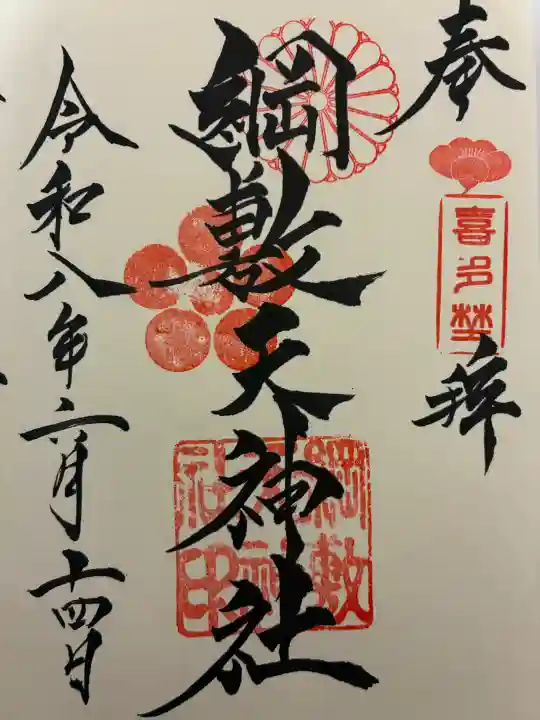 奉拝
喜多埜
綱敷天神社
綱敷
天神
社印
令和八年二月十四日